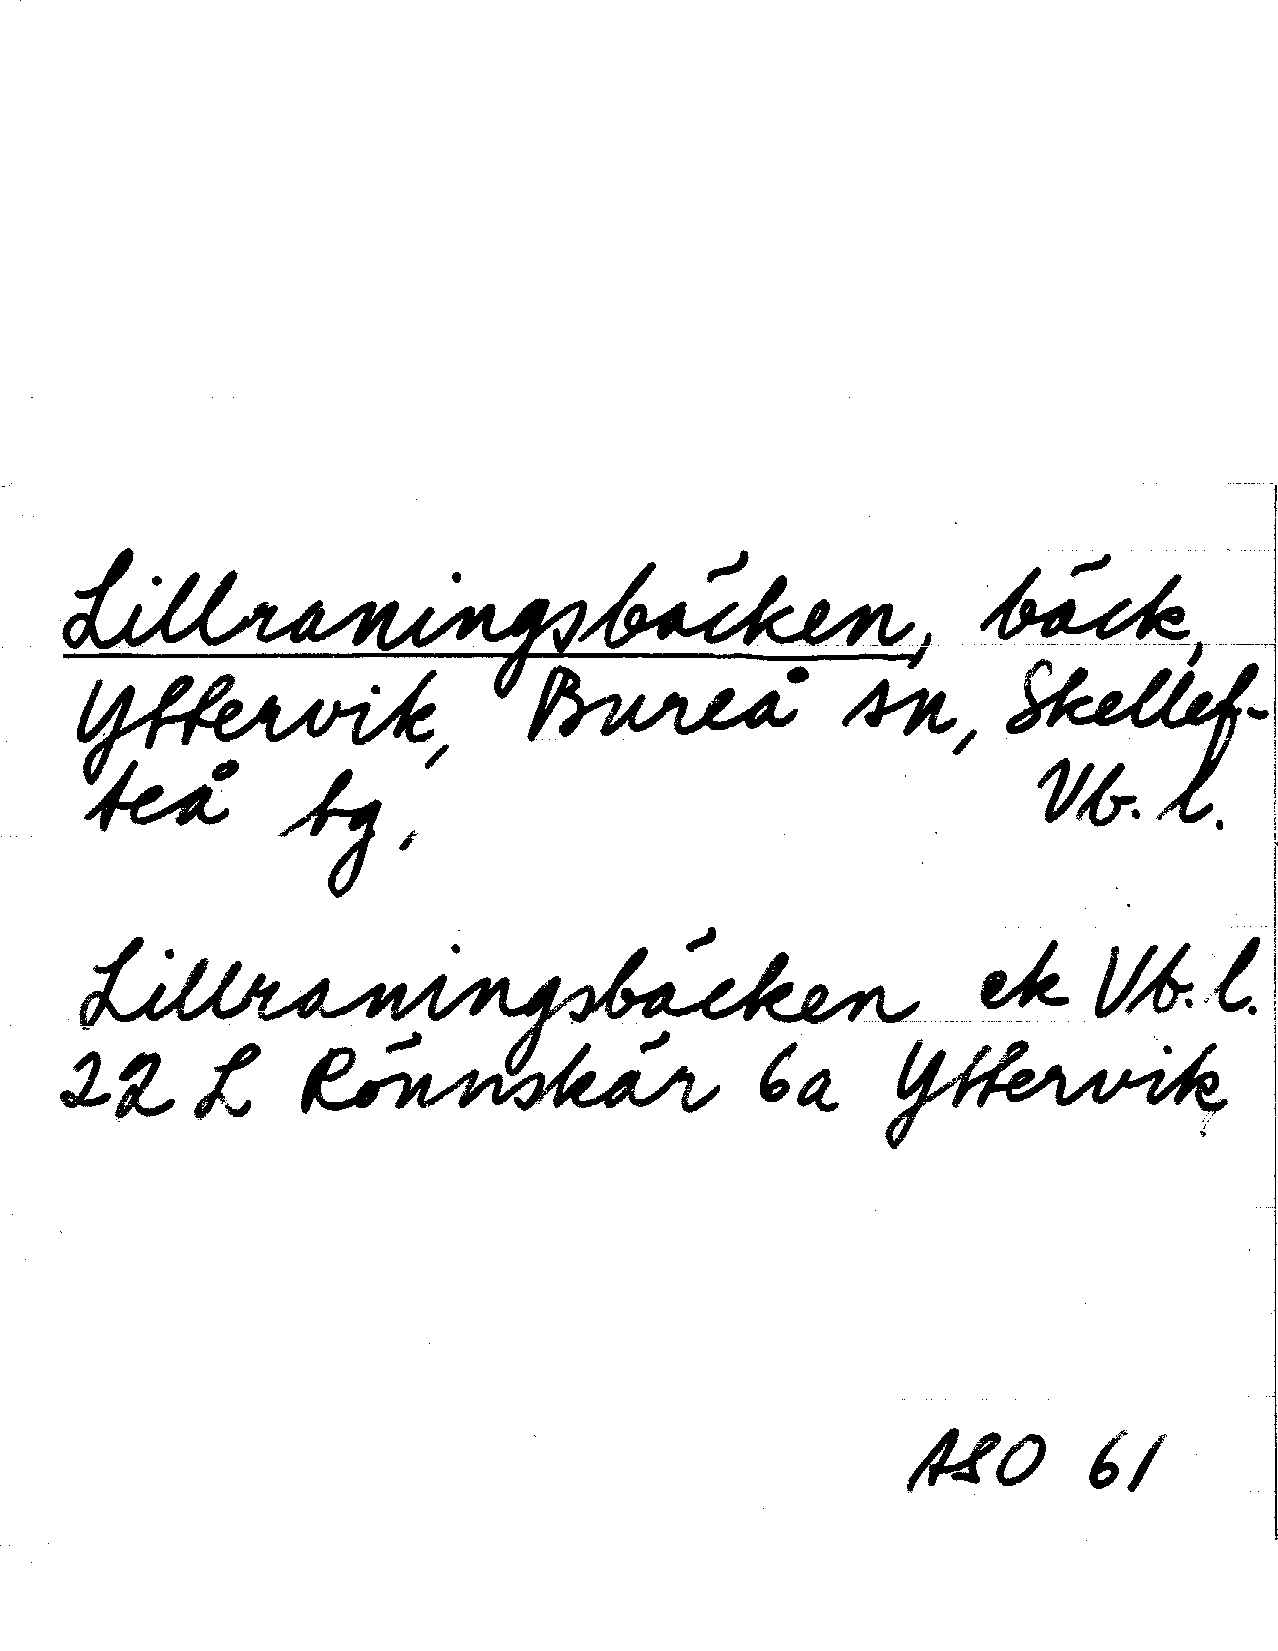 Lillraningsbäcken, bäck,
Yttervik, Bureå sn, Skellef-
teå tg. Vb. l.
Lillraningsbäcken ek Vb. l.
22 L Rönnskär 6a Yttervik
ASO 61